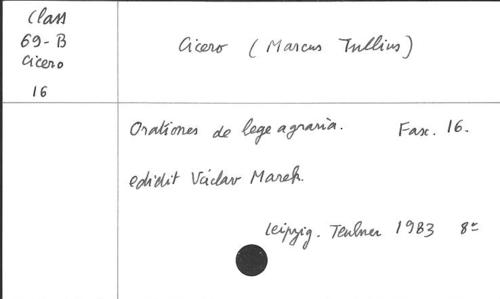 Class
69-B
Cicero
16
Cicero (Marcus Tullius)
Orationes de lege agraria. Fasc. 16.
edidit Václav Marek.
Leipzig. Teubner 1983 8º